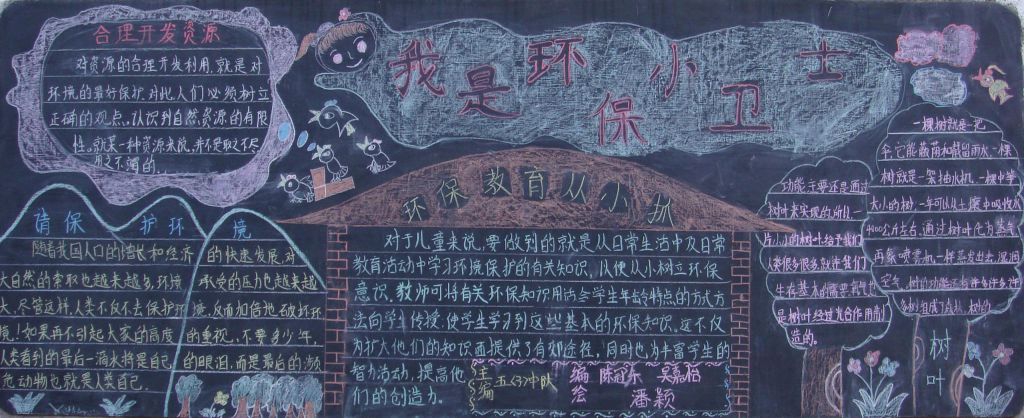 我是环保小卫士
合理开发资源
对资源的合理开发利用,就是对
环境的最好保护,对此人们必须树立
正确的观点,认识到自然资源的有限
性,就某一种资源来说,并不是取之不尽
用之不竭的。
请保护环境
随着我国人口的增长和经济的快速发展,对
大自然的索取也越来越多,环境承受的压力也越来越
大。尽管这样,人类不仅不去保护环境,反而加倍地破坏环
境!如果再不引起大家的高度的重视,不要多少年,
人类看到的最后一滴水将是自己的眼泪,而是最后的濒
危动物也就是人类自己。
环保教育从小抓
对于儿童来说,要做到的就是从日常生活中及日常
教育活动中学习环境保护的有关知识,以便从小树立环保
意识。教师可将有关环保知识用适合学生年龄特点的方式方
法向学生传授,使学生学习到这些基本的环保知识。这不仅
为扩大他们的知识面提供了有效途径,同时也为丰富学生的
智力活动,提高他
们的创造力。
主编 五(3)中队
编绘 陈冠东 吴嘉怡
潘颖
一棵树就是一把
伞,它能遮荫和截留雨水一棵
树就是一架抽水机,一棵中等
大小的树,一年可以从土壤中吸收水
4000公斤左右,通过树叶化为蒸气
再象喷雾机一样蒸发出去,湿润
空气,树的功能还有许多许多的
树组成了成林,树的
功能主要还是通过
树叶来实现的,所以一
片小小的树叶给予我们
人类很多很多,就连我们
生存基本的需要氧气也
是树叶经过光合作用制
造的。
树叶